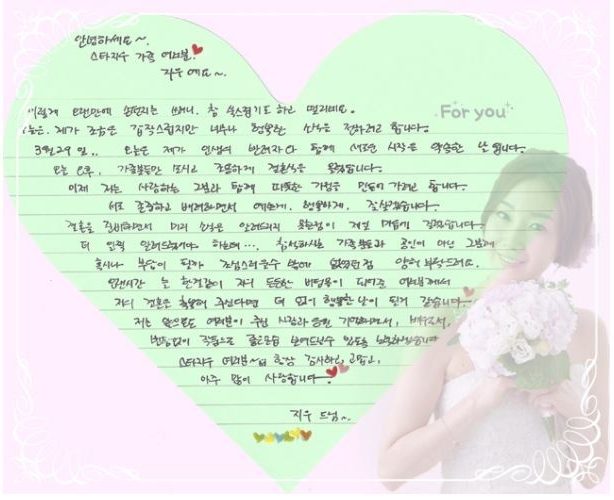 안녕하세요~.
스타지우 가족 여러분.
지우예요~.
이렇게 오랜만에 손편지를 쓰려니, 참 쑥스럽기도 하고 떨리네요.
오늘은 제가 조금은 갑작스럽지만 너무나 행복한 소식을 전하려고 합니다.
3월 29일.. 오늘은 제가 인생의 반려자와 함께 새로운 시작을 약속한 날입니다.
오늘 오후, 가족분들만 모시고 조용하게 결혼식을 올렸습니다.
이제 저는 사랑하는 그분과 함께 따뜻한 가정을 만들어 가려고 합니다.
서로 존중하고 배려하면서 예쁘게, 행복하게, 잘 살겠습니다.
결혼을 준비하면서 미리 소식을 알려드리지 못한점이 제일 마음에 걸렸습니다
더 일찍 알려드렸어야 하는데..., 참석하시는 가족분들과 공인이 아닌 그분께
혹시나 부담이 될까 조심스러울수 밖에 없었던점 양해 부탁드려요.
오랜시간 늘 한결같이 저의 든든한 버팀목이 되어준 여러분께서
저의 결혼을 축복해 주신다면 더 없이 행복한 날이 될거 같습니다.
저는 앞으로도 여러분이 주신 사랑과 응원 기억하면서,
변함없이 작품으로 좋은모습 보여드릴수 있도록 노력하겠습니다
스타지우 여러분~ 항상 감사하고, 고맙고,
아주 많이 사랑합니다.
지우 드림~.
For you